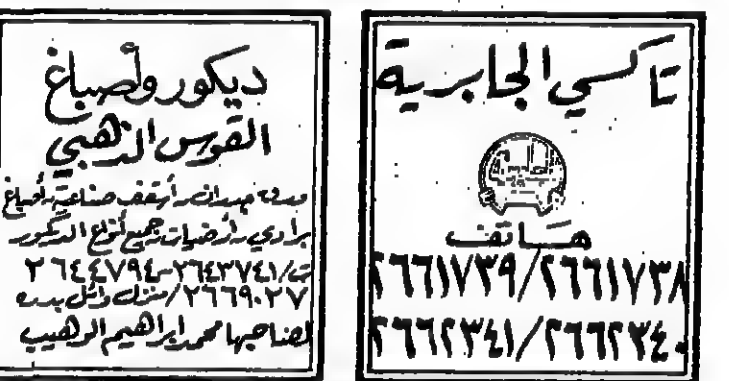 تاكسي الجابرية
هاتف
٢٦٦١٧٣٩/٢٦٦١٧٣٨
٢٦٦٢٣٤١/٢٦٦٢٣٤٠
ديكور وأصباغ
القوس الذهبي
ورق جدران - أسقف صناعية - أصباغ
برادي - أرضيات - جميع أنواع الديكور
ت/٢٦٤٣٧٤١-٢٦٤٤٧٩٤
٢٦٦٩٠٢٧/منزل
لصاحبها محمد إبراهيم الوهيب